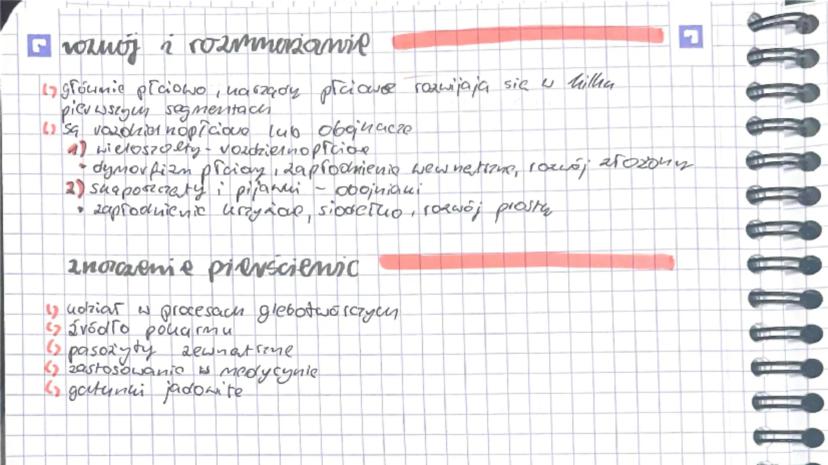 rozwój i rozmnożanie
głównie płciowo, narządy płciowe rozwijają się w kilku
pierwszym segmentach
są rozdzielnopłciowe lub obojnacze
1) wieloszczety - rozdzielnopłciowe
• dymorfizm płciowy, zapłodnienie wewnętrzne, rozwój złożony
2) skąposzczety i pijawki - obojniaki
• zapłodnienie krzyżowe, siodełko, rozwój prosty
znaczenie pierścienic
udział w procesach glebotwórczych
źródło pokarmu
pasożyty zewnętrzne
zastosowanie w medycynie
gatunki jadowite